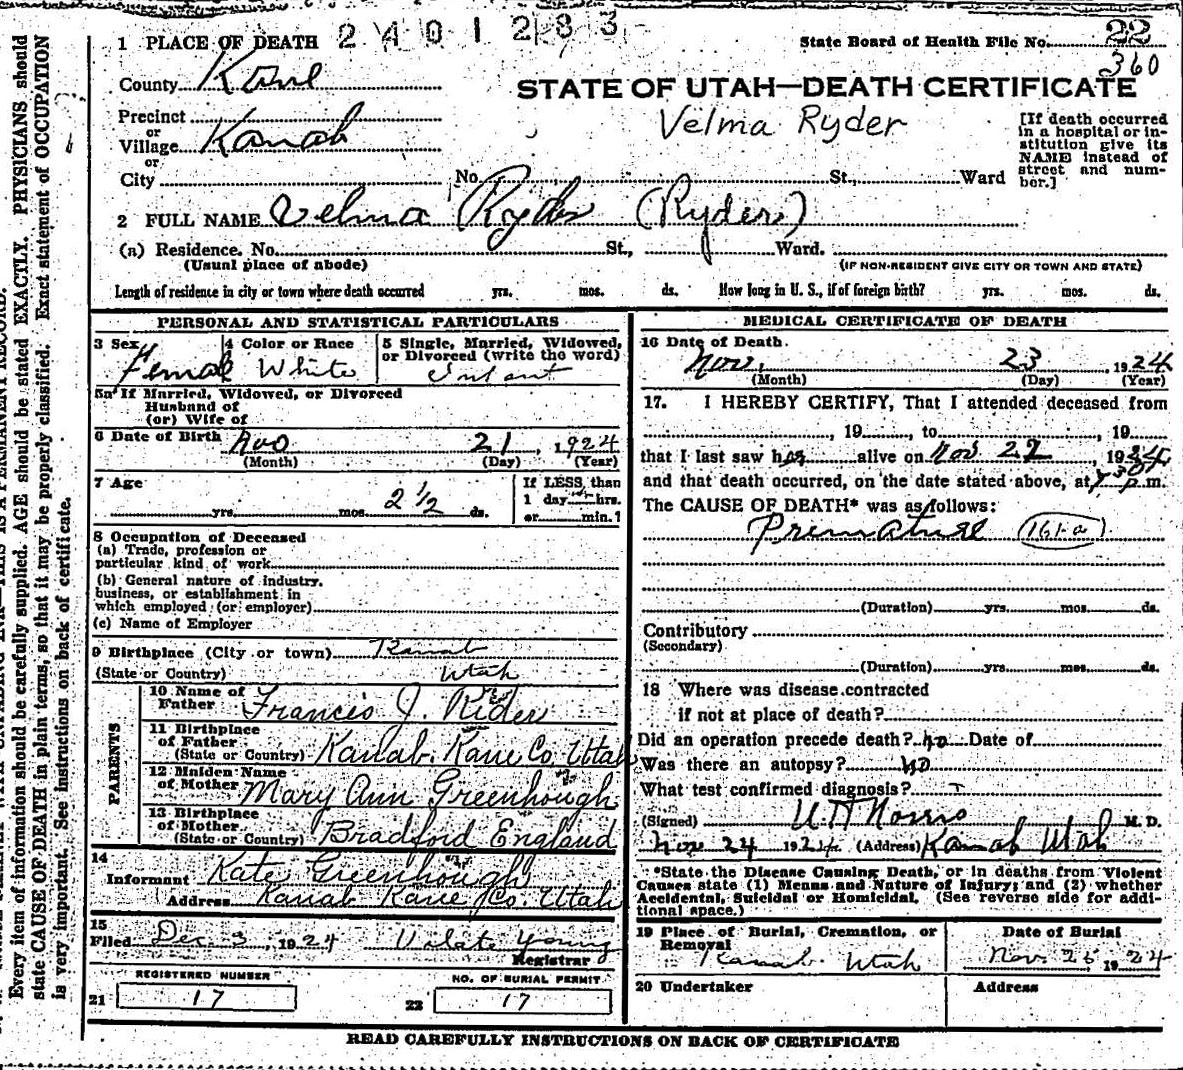 2401283
22
360
1 PLACE OF DEATH
State Board of Health File No.
County Kane
STATE OF UTAH—DEATH CERTIFICATE
Precinct
or
Village Kanab
or
City
Velma Ryder
[If death occurred
in a hospital or in-
stitution give its
NAME instead of
street and num-
ber.]
No. St., Ward
2 FULL NAME Velma Ryder (Ryder)
(a) Residence. No. St., Ward.
(Usual place of abode) (IF NON-RESIDENT GIVE CITY OR TOWN AND STATE)
Length of residence in city or town where death occurred yrs. mos. ds. How long in U. S., if of foreign birth? yrs. mos. ds.
PERSONAL AND STATISTICAL PARTICULARS
3 Sex 4 Color or Race 5 Single, Married, Widowed,
or Divorced (write the word)
Female White Infant
5a If Married, Widowed, or Divorced
Husband of
(or) Wife of
6 Date of Birth Nov 21, 1924
(Month) (Day) (Year)
7 Age If LESS than
yrs. mos. 2 1/2 ds. 1 day hrs.
or min.?
8 Occupation of Deceased
(a) Trade, profession or
particular kind of work
(b) General nature of industry.
business, or establishment in
which employed (or employer)
(c) Name of Employer
9 Birthplace (City or town) Kanab
(State or Country) Utah
PARENTS
10 Name of
Father Francis J. Rider
11 Birthplace
of Father
(State or Country) Kanab. Kane Co, Utah
12 Maiden Name
of Mother Mary Ann Greenhough
13 Birthplace
of Mother
(State or Country) Bradford England
14
Informant Kate Greenhough
Address Kanab Kane Co. Utah
15
Filed Dec 3, 1924 Young
Registrar
REGISTERED NUMBER NO. OF BURIAL PERMIT
21 17 22 17
MEDICAL CERTIFICATE OF DEATH
16 Date of Death.
Nov. 23 1924
(Month) (Day) (Year)
17. I HEREBY CERTIFY, That I attended deceased from
, 19 , to , 19
that I last saw her alive on Nov 22, 1924,
and that death occurred, on the date stated above, at p.m.
The CAUSE OF DEATH* was as follows:
Premature (161-a)
(Duration) yrs. mos. ds.
Contributory
(Secondary)
(Duration) yrs. mos. ds.
18 Where was disease contracted
if not at place of death?
Did an operation precede death? no Date of
Was there an autopsy? no
What test confirmed diagnosis?
(Signed) Norris M. D.
Nov 24 1924 (Address) Kanab Utah
*State the Disease Causing Death, or in deaths from Violent
Causes state (1) Means and Nature of Injury; and (2) whether
Accidental, Suicidal or Homicidal. (See reverse side for addi-
tional space.)
19 Place of Burial, Cremation, or Date of Burial
Removal
Kanab. Utah Nov. 25 1924
20 Undertaker Address
READ CAREFULLY INSTRUCTIONS ON BACK OF CERTIFICATE
Every item of information should be carefully supplied. AGE should be stated EXACTLY. PHYSICIANS should
state CAUSE OF DEATH in plain terms, so that it may be properly classified. Exact statement of OCCUPATION
is very important. See instructions on back of certificate.